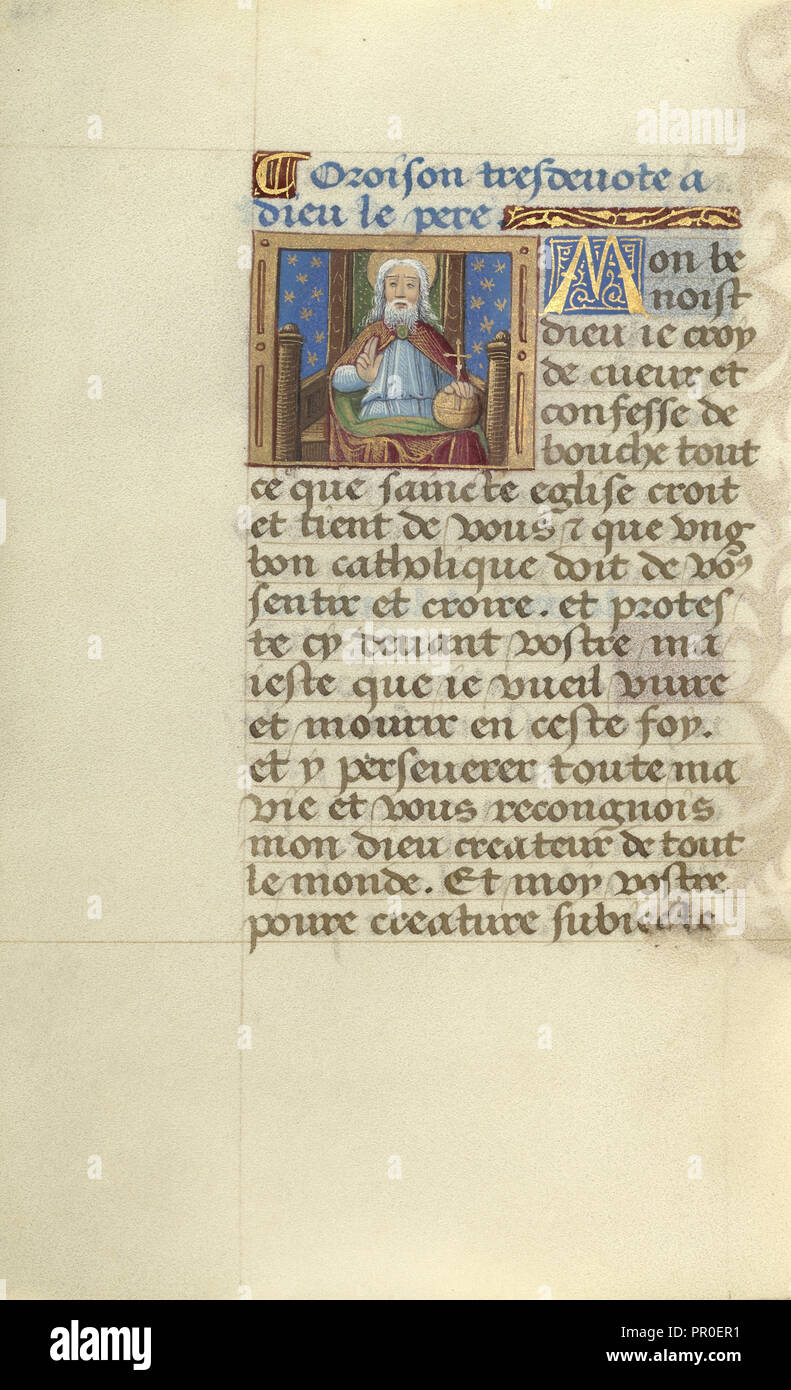 Oroison tresdevote a
dieu le pere
Mon be
noist
dieu ie croy
de cueur et
confesse de
bouche tout
ce que saincte eglise croit
et tient de vous ⁊ que vng
bon catholique doit de voꝰ
sentir et croire. et protes
te cy deuant vostre ma
ieste que ie vueil viure
et mourir en ceste foy.
et y perseuerer toute ma
vie et vous recongnois
mon dieu createur de tout
le monde. Et moy vostre
poure creature subiecte
alamy
Image ID: PR0ER1
www.alamy.com